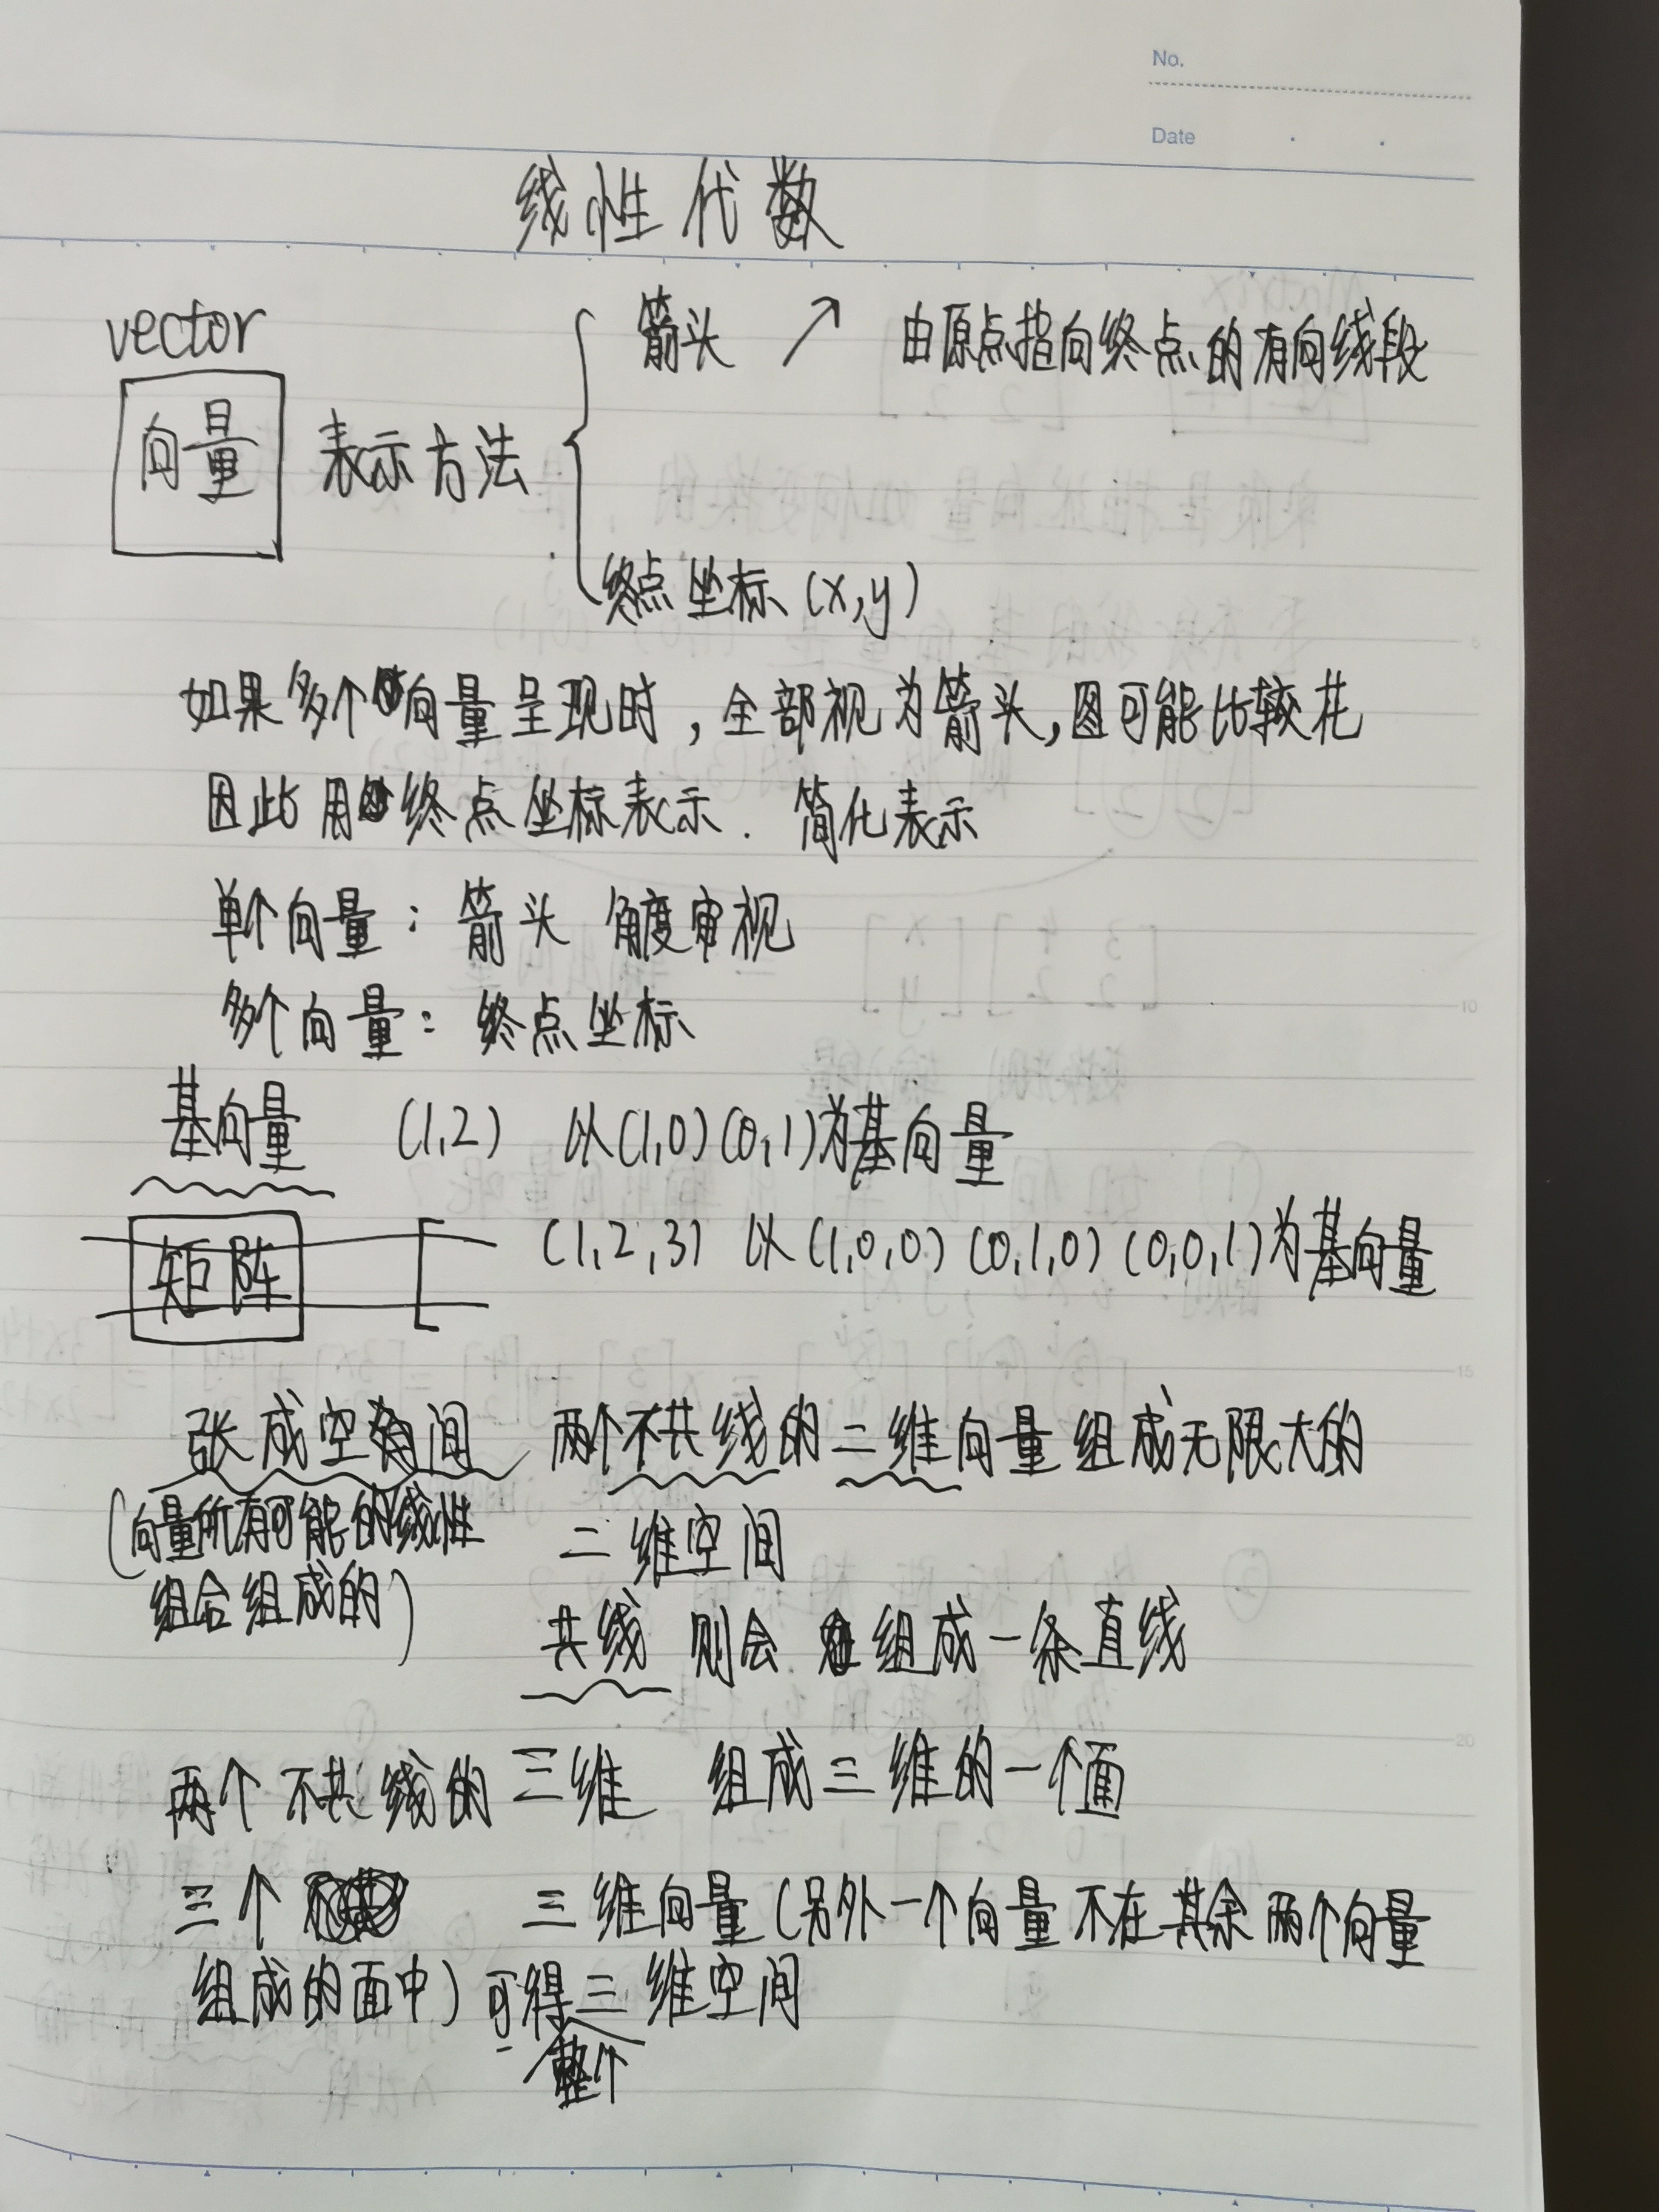 No.
Date
线性代数
vector
箭头 ↗ 由原点指向终点的有向线段
向量 表示方法
终点坐标 (x,y)
如果多个向量呈现时，全部视为箭头，图可能比较花
因此用终点坐标表示. 简化表示
单个向量：箭头 角度审视
多个向量：终点坐标
基向量 (1,2) 以(1,0)(0,1)为基向量
矩阵 [ (1,2,3) 以(1,0,0)(0,1,0)(0,0,1)为基向量
张成空间 两个不共线的二维向量组成无限大的
(向量所有可能的线性
二维空间
组合组成的)
共线 则会 组成一条直线
两个不共线的三维 组成三维的一个面
三个 三维向量(另外一个向量不在其余两个向量
组成的面中)可得三维空间
整个
5
10
15
20